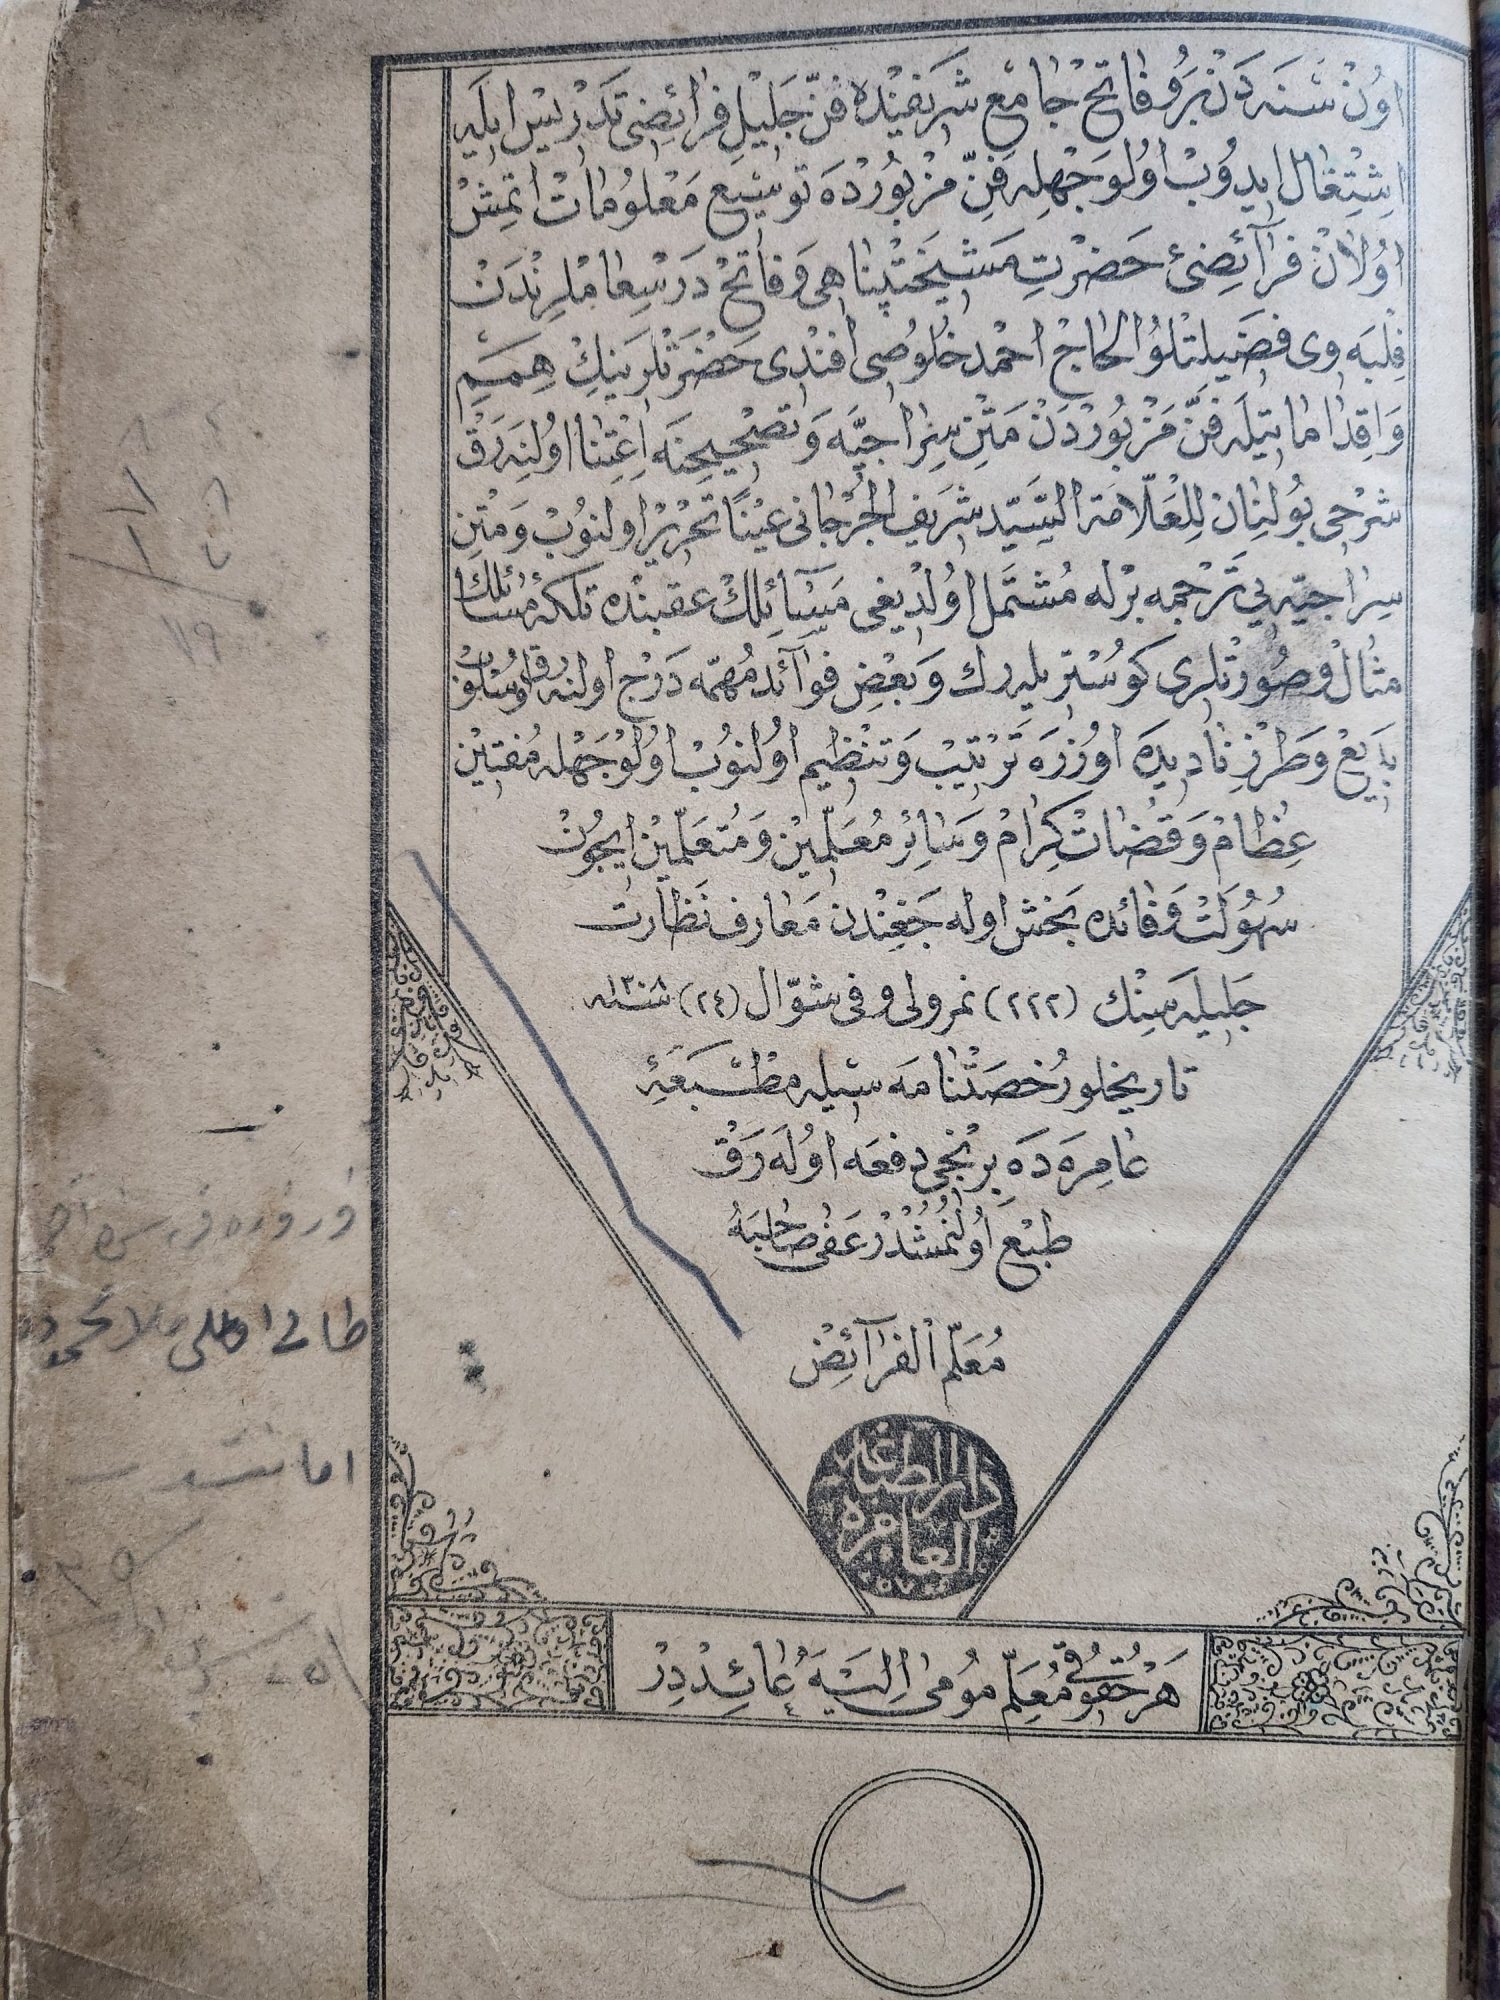 اوُنْ سَنَه دَنْ بَرُو فَاتِحْ جَامِعِ شَرِيفِنْدَه فَنِّ جَلِيلِ فَرَائِضِى تَدْرِيسْ ايلَه
اِشْتِغَالْ ايدُوبْ اوُلوَجْهِلَه فَنِّ مَزْبُورْدَه تَوْسِيعِ مَعْلُومَاتْ اتمِشْ
اوُلَانْ فَرَآئِضِئِ حَضْرَتِ مَشِيخَتْپَنَاهِى وَ فَاتِحْ دَرْسِعَامْلَرِنْدَنْ
فِلبَه وى فَضِيلَتْلُو الحَاجْ احْمَدْ خُلُوصِى افَنْدِى حَضْرَتْلَرِينِكْ هِمَمِ
وَاِقْدَامَاتِيلَه فَنِّ مَزْبُورْدَنْ مَتْنِ سِرَاجِيَّه وَتَصْحِيحِنَه اِعْتِنَا اوُلِنَه رَقْ
شَرْحِى بُولِنَانْ لِلْعَلَّامَة السَّيِّد شَرِيف الجُرْجَانِى عَيْنًا تَحْرِيرْ اولنوُبْ وَمَتْنِ
سِرَاجِيَّه يِى تَرْجمه بِرْلَه مُشْتَمَلْ اوُلدِيغِى مَسَآئِلِكْ عَقَبِنْدَه تَكَه مَسَائِلِكْ
مِثَالْ وَصُورَتْلَرِى كوُسْتَرِيلَه رِكْ وَبَعْضِ فَوَآئِد مُهِمَّه دَرْج اولنه رق اُسْلُوبِ
بَدِيعْ وَطَرْزِ نَادِيدَه اوُزْرَه تَرْتِيبْ وَتَنْظِيم اوُلنوُبْ اوُلوَجْهِلَه مُفْتِينِ
عِظَامْ وَقُضَاتِ كِرَامْ وَسَائِرْ مُعَلِّمِينْ وَمُتَعَلِّمِينْ ايچُونْ
سُهُولَتْ وَفَائِدَه بَخْشْ اوله جَغِنْدَنْ مَعَارِف نَظَارَتِ
جَلِيلَه سِنِكْ (٢٢٢) نمرولى و فى شوّال (٢٤) سَنَه ١٣٠٨
تَارِيخْلُو رُخْصَتْنَامَه سِيلَه مَطْبَعَۀِ
عَامِرَه دَه بِرِنْجِى دَفْعَه اوُلَه رَقْ
طَبْعْ اوُلنْمُشْدُرْ عَفَى صَاحِبَهُ
مُعَلِّم الفَرَآئِضْ
دار الطباعة
العامره
هَرْ حُقُوقِى مُعَلِّمِ مُومَى اِلَيْهَ عَائِدْدِرْ